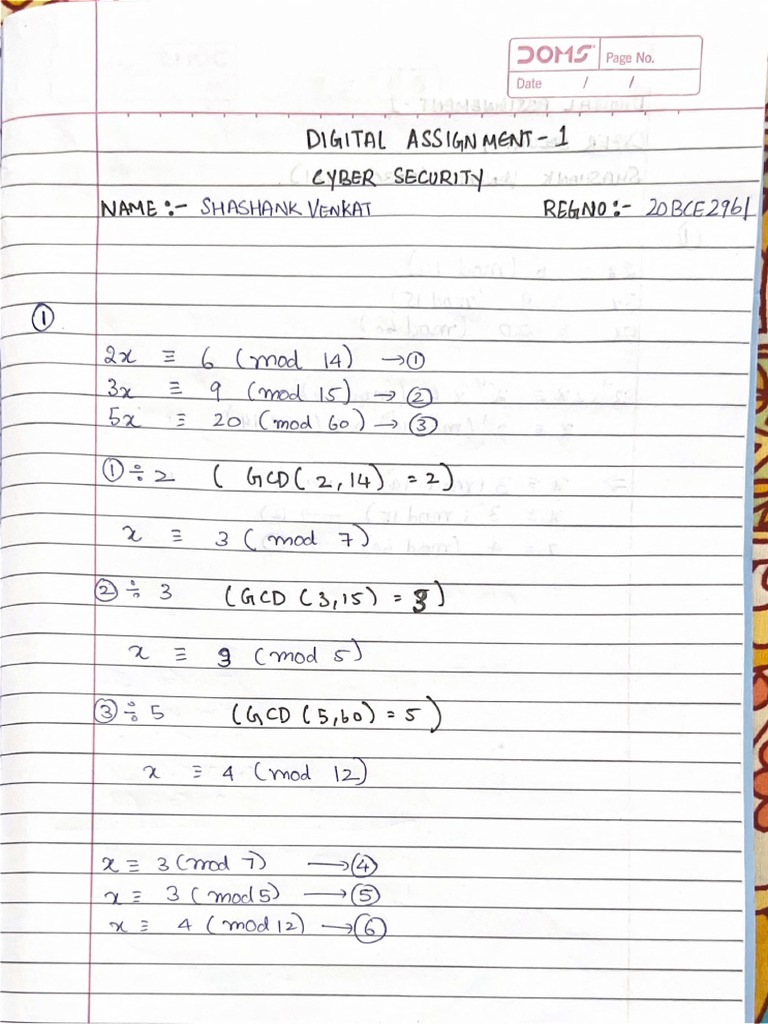 DOMS Page No.
Date / /
DIGITAL ASSIGNMENT-1
CYBER SECURITY
NAME:- SHASHANK VENKAT REGNO:- 20BCE2961
①
2x ≡ 6 (mod 14) →①
3x ≡ 9 (mod 15) →②
5x ≡ 20 (mod 60) →③
①÷2 ( GCD(2,14) = 2)
x ≡ 3 (mod 7)
②÷3 (GCD(3,15) = 3)
x ≡ 3 (mod 5)
③÷5 (GCD(5,60) = 5)
x ≡ 4 (mod 12)
x ≡ 3(mod 7) →④
x ≡ 3 (mod5) →⑤
x ≡ 4 (mod12) →⑥